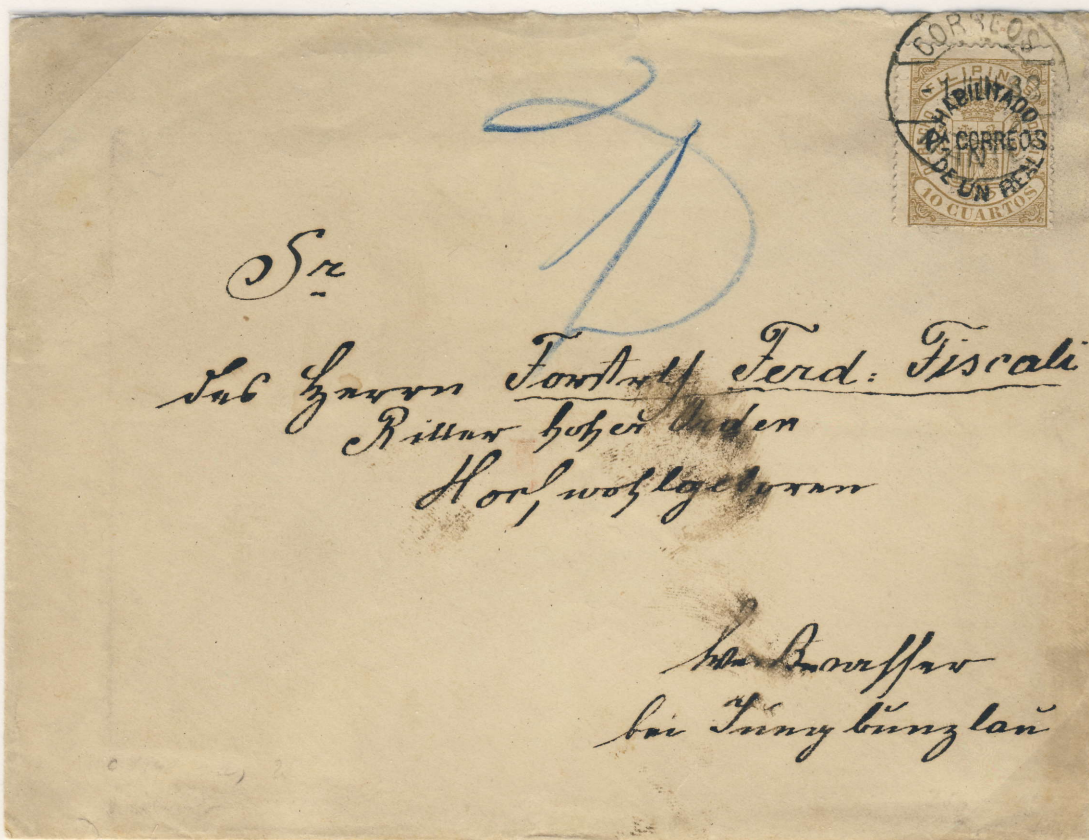 CORREOS
FILIPINAS
HABILITADO
CORREOS
DE UN REAL
10 CUARTOS
Sr
des Herrn Forstrth Ferd: Fiscali
Ritter hoher Orden
Hochwohlgeboren
Weißwasser
bei Jungbunzlau